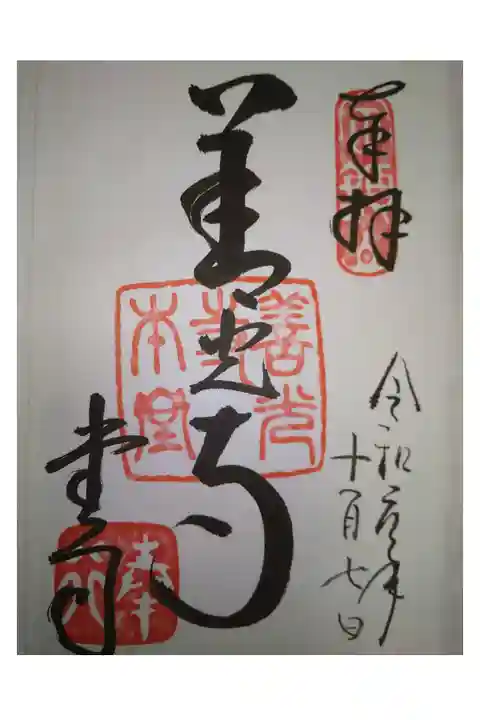 奉拝
令和元年
十月七日
善光寺
堂司
善光
本堂